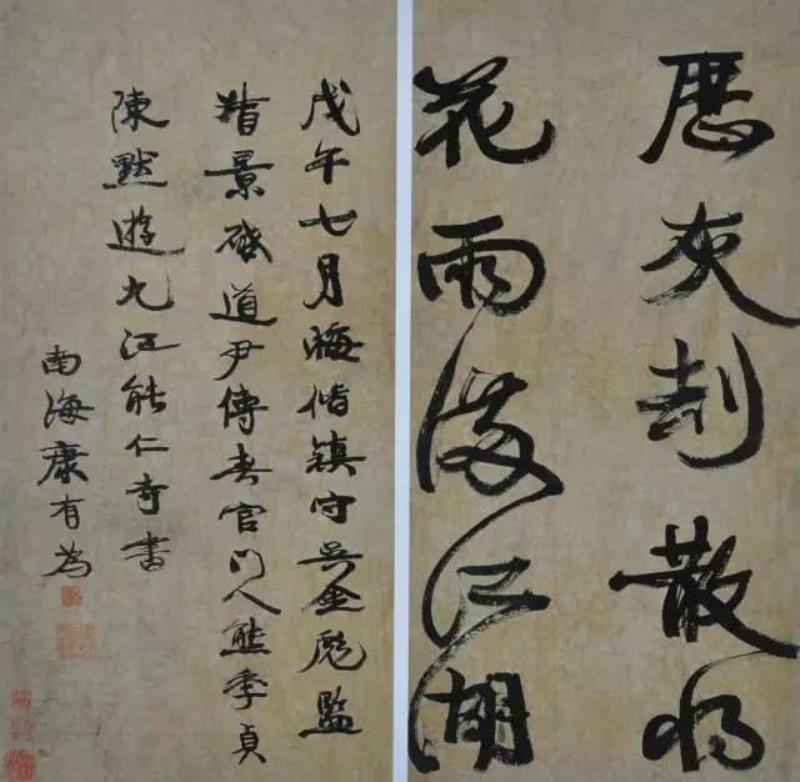 歷灰刦散將
花雨漫江湖
戊午七月晦偕鎮守吳金彪監
督景啟道尹傅春官門人熊季貞
陳默遊九江能仁寺書
南海康有為